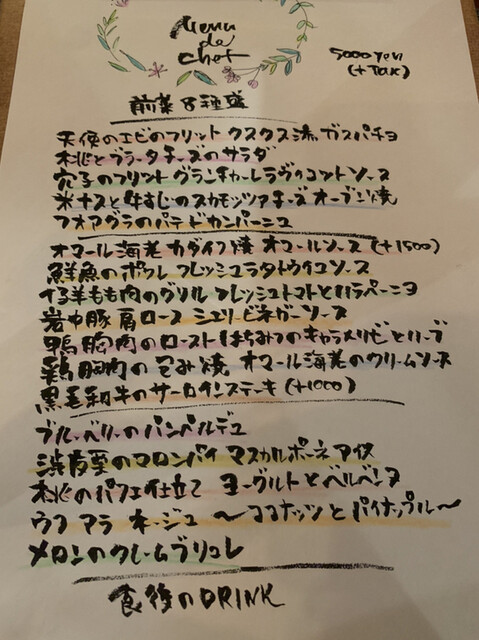 Menu
de
chef
5000yen
(+Tax)
前菜8種盛
天使のエビのフリット クスクス添 ガスパチョ
桃とブラータチーズのサラダ
穴子のフリット グランキャーレ ラヴィゴットソース
米ナスと牛すじのスカモッツァチーズオーブン焼
フォアグラのパテドカンパーニュ
オマール海老 カダイフ焼 オマールソース (+1500)
鮮魚のポワレ フレッシュラタトゥイユソース
仔羊もも肉のグリル フレッシュトマトとハラペーニョ
岩中豚肩ロース シェリービネガーソース
鴨胸肉のロースト はちみつのキャラメリゼとハーブ
鶏胸肉の包み焼 オマール海老のクリームソース
黒毛和牛のサーロインステーキ (+1000)
ブルーベリーのパンペルデュ
渋皮栗のマロンパイ マスカルポーネアイス
桃のパフェ仕立て ヨーグルトとベルベンヌ
ウフ ア ラ ネージュ ～ココナッツとパイナップル～
メロンのクレームブリュレ
食後のDRINK